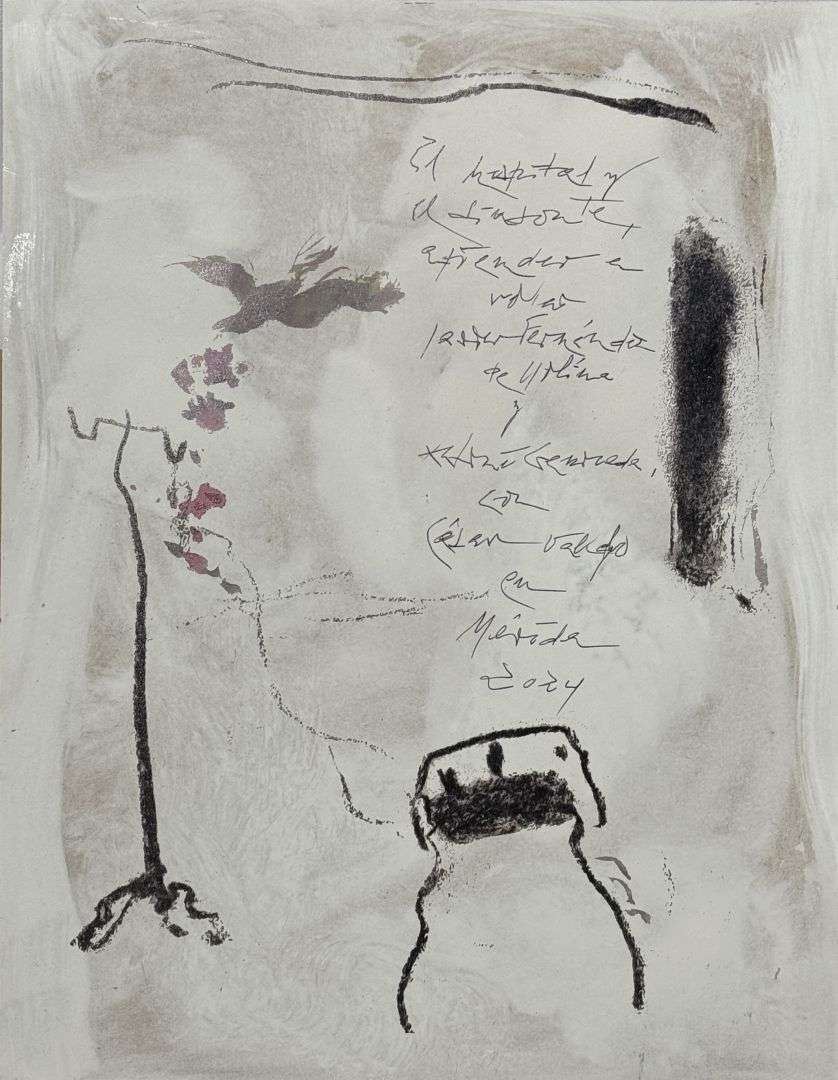 El hospital y
el sinsonte,
aprender a
volar
Javier Fernández
de Molina
y
Antonio
con
César Vallejo
en
Mérida
2024